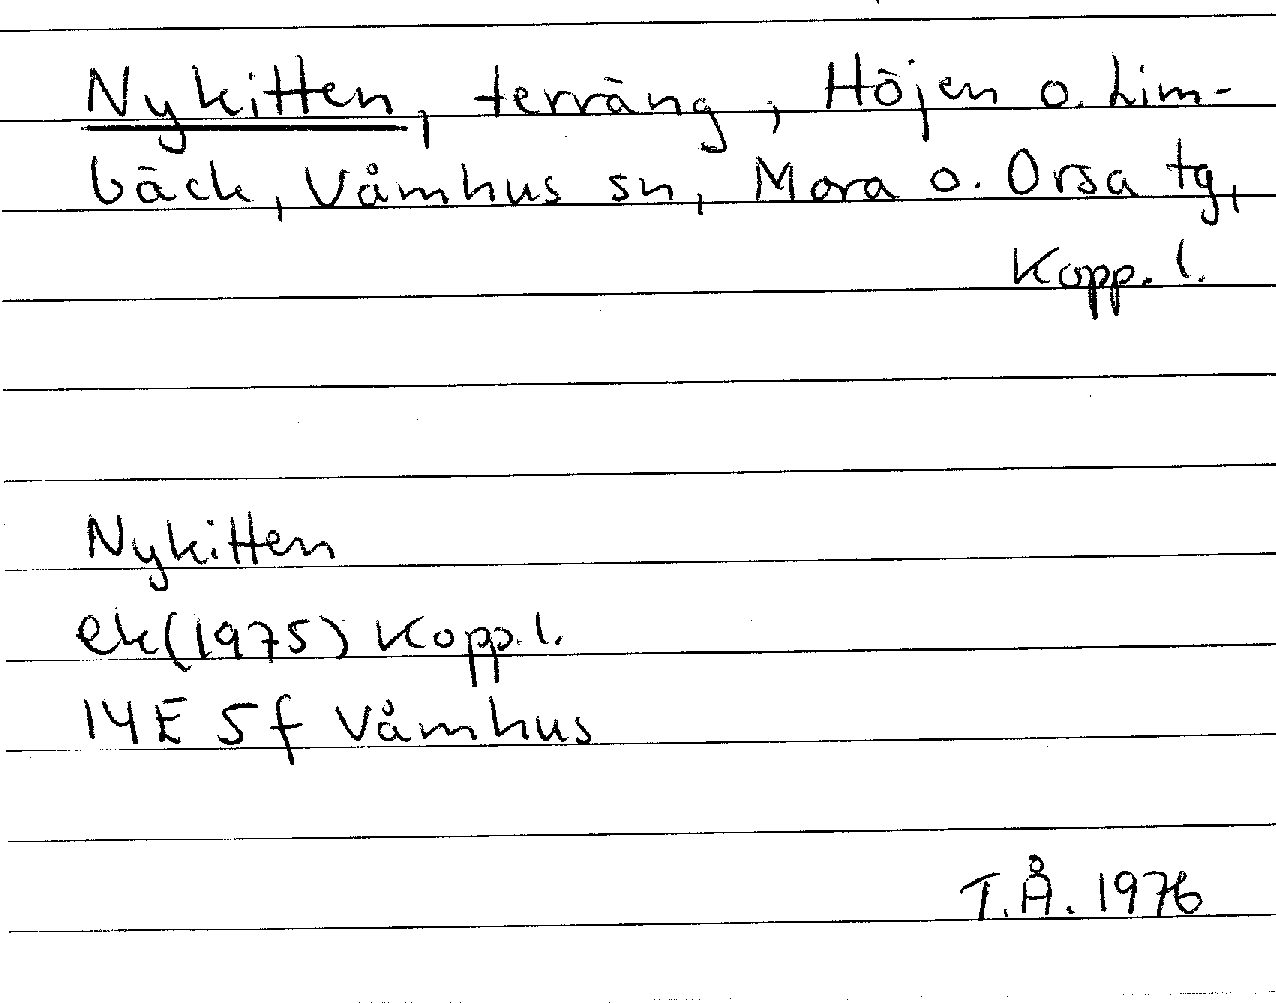 Nykitten, terräng, Höjen o. Lim-
bäck, Våmhus sn, Mora o. Orsa tg,
Kopp. l.
Nykitten
ek(1975) Kopp. l.
14E 5f Våmhus
T.Å. 1976